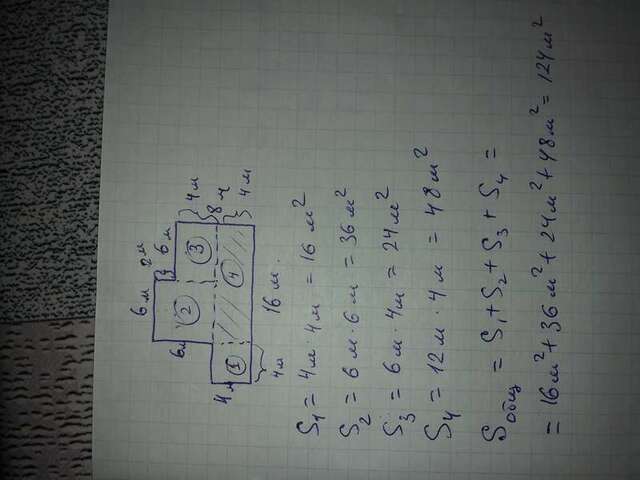 6м 2м
6м
6м
2 3 4м
8м
4м 1 4 4м
4м 16 м.
S₁ = 4м · 4м = 16 м²
S₂ = 6 м · 6 м = 36 м²
S₃ = 6м · 4м = 24м²
S₄ = 12м · 4м = 48м²
Sобщ = S₁ + S₂ + S₃ + S₄ =
= 16м² + 36 м² + 24м² + 48м² = 124м²